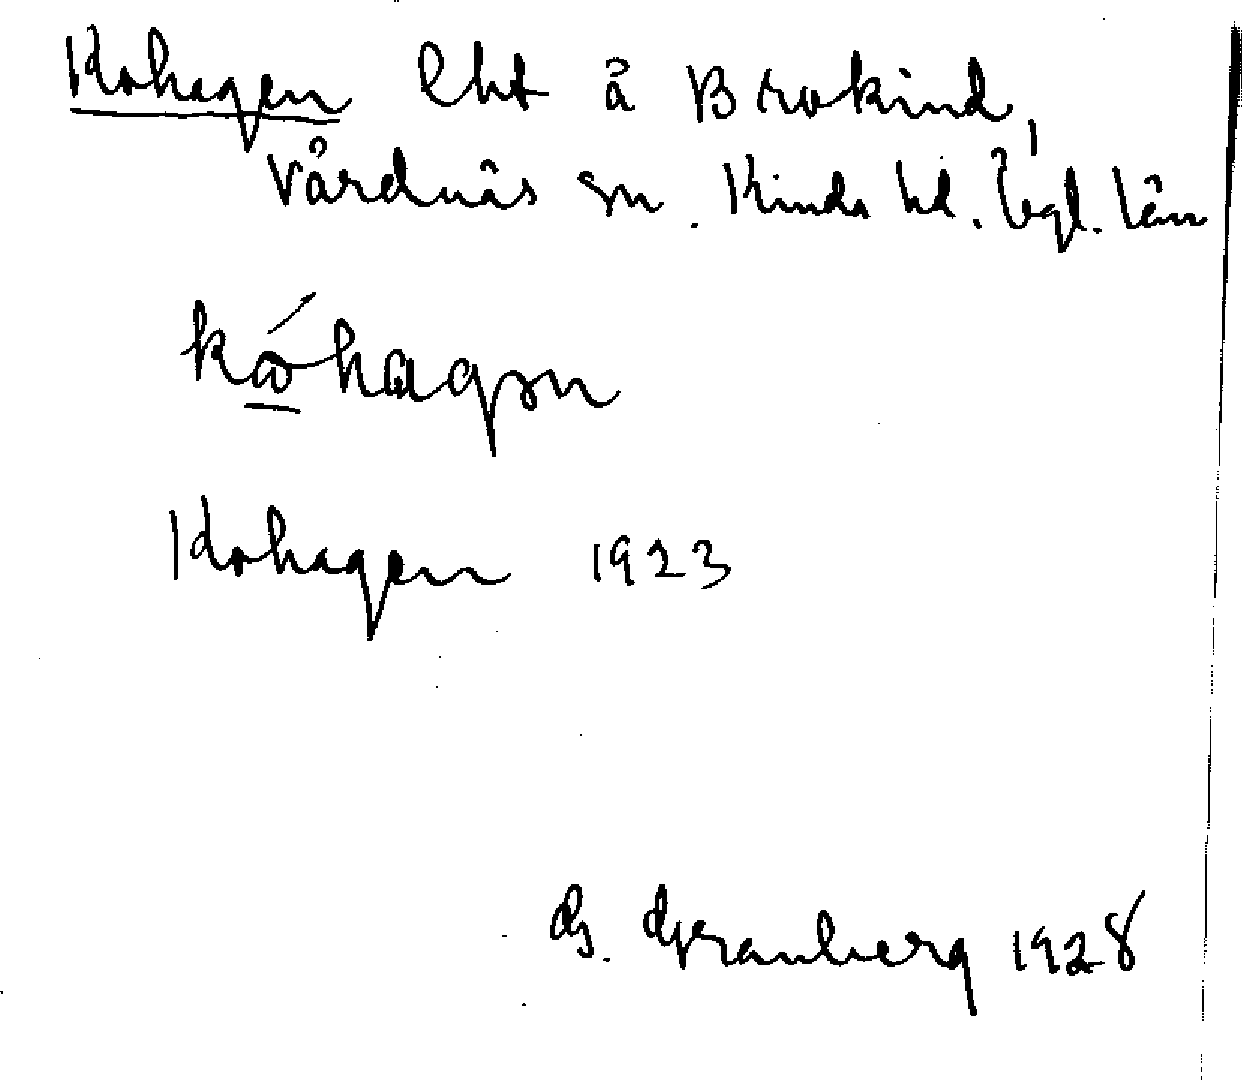 Kohagen lht å Brokind,
Vårdnäs sn. Kinds hd. Ögl. län
Kohagen 1923
G. Granberg 1928